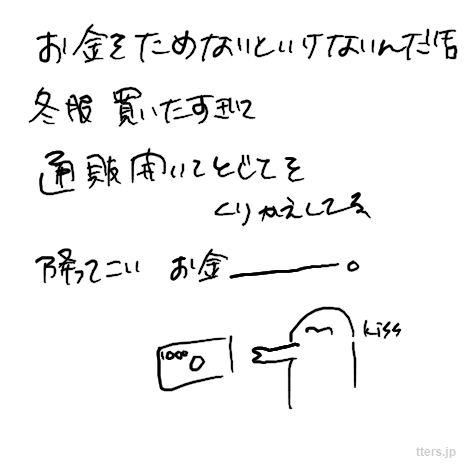 お金をためないといけないんだ佶
冬服買いたすぎて
通販開いてとじてを
くりかえしてる
降ってこい お金——。
kiss
1000
tters.jp